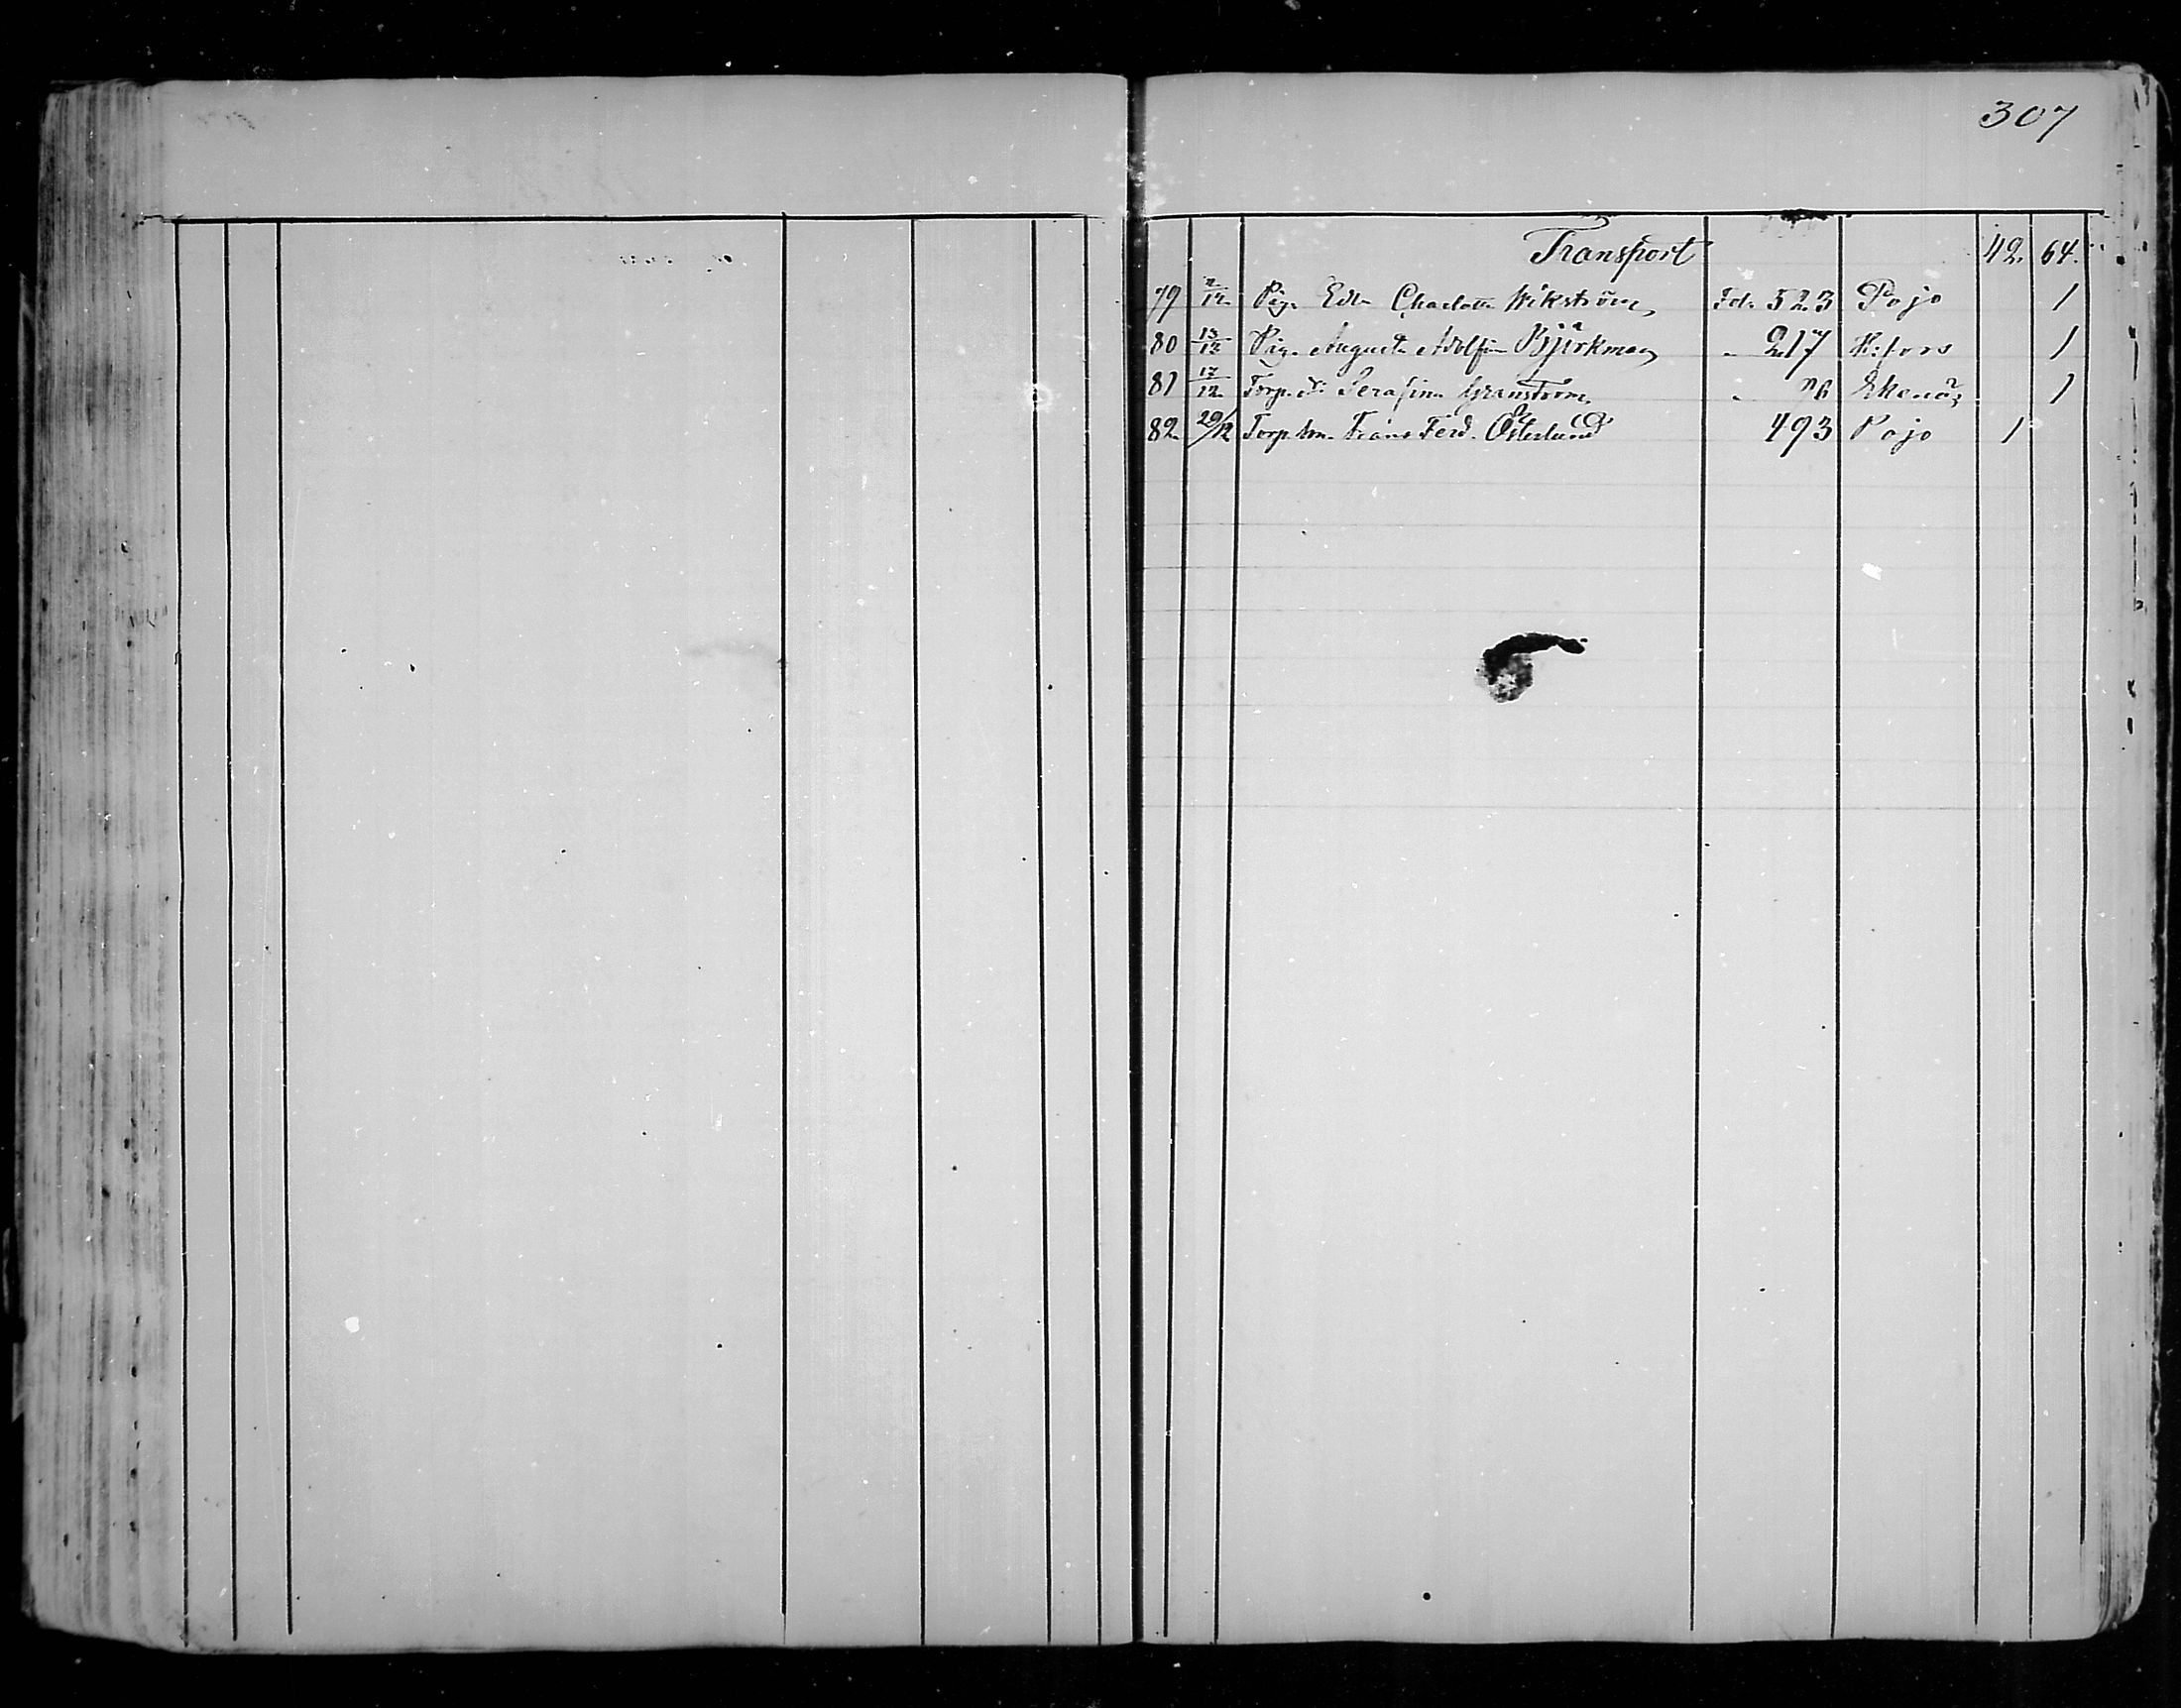 307
Transport 42. 64.
79 2/12 Pig. Edla Charlotta Wikström, Fol. 523 Pojo 1
80 13/12 Pig. Augusta Adolfina Björkman, " 217 H:fors 1
81 17/12 Torp. d: Serafina Granström, " Ekenäs 1
82. 29/12 Torp. son. Frans Ferd. Österlund 493 Pojo 1